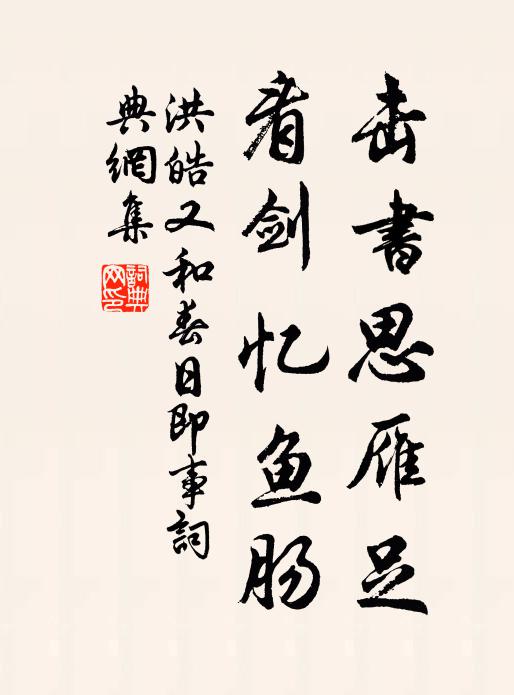 去書思雁足
看剑忆鱼肠
洪皓又和春日即事詞
典網集
詞典网印